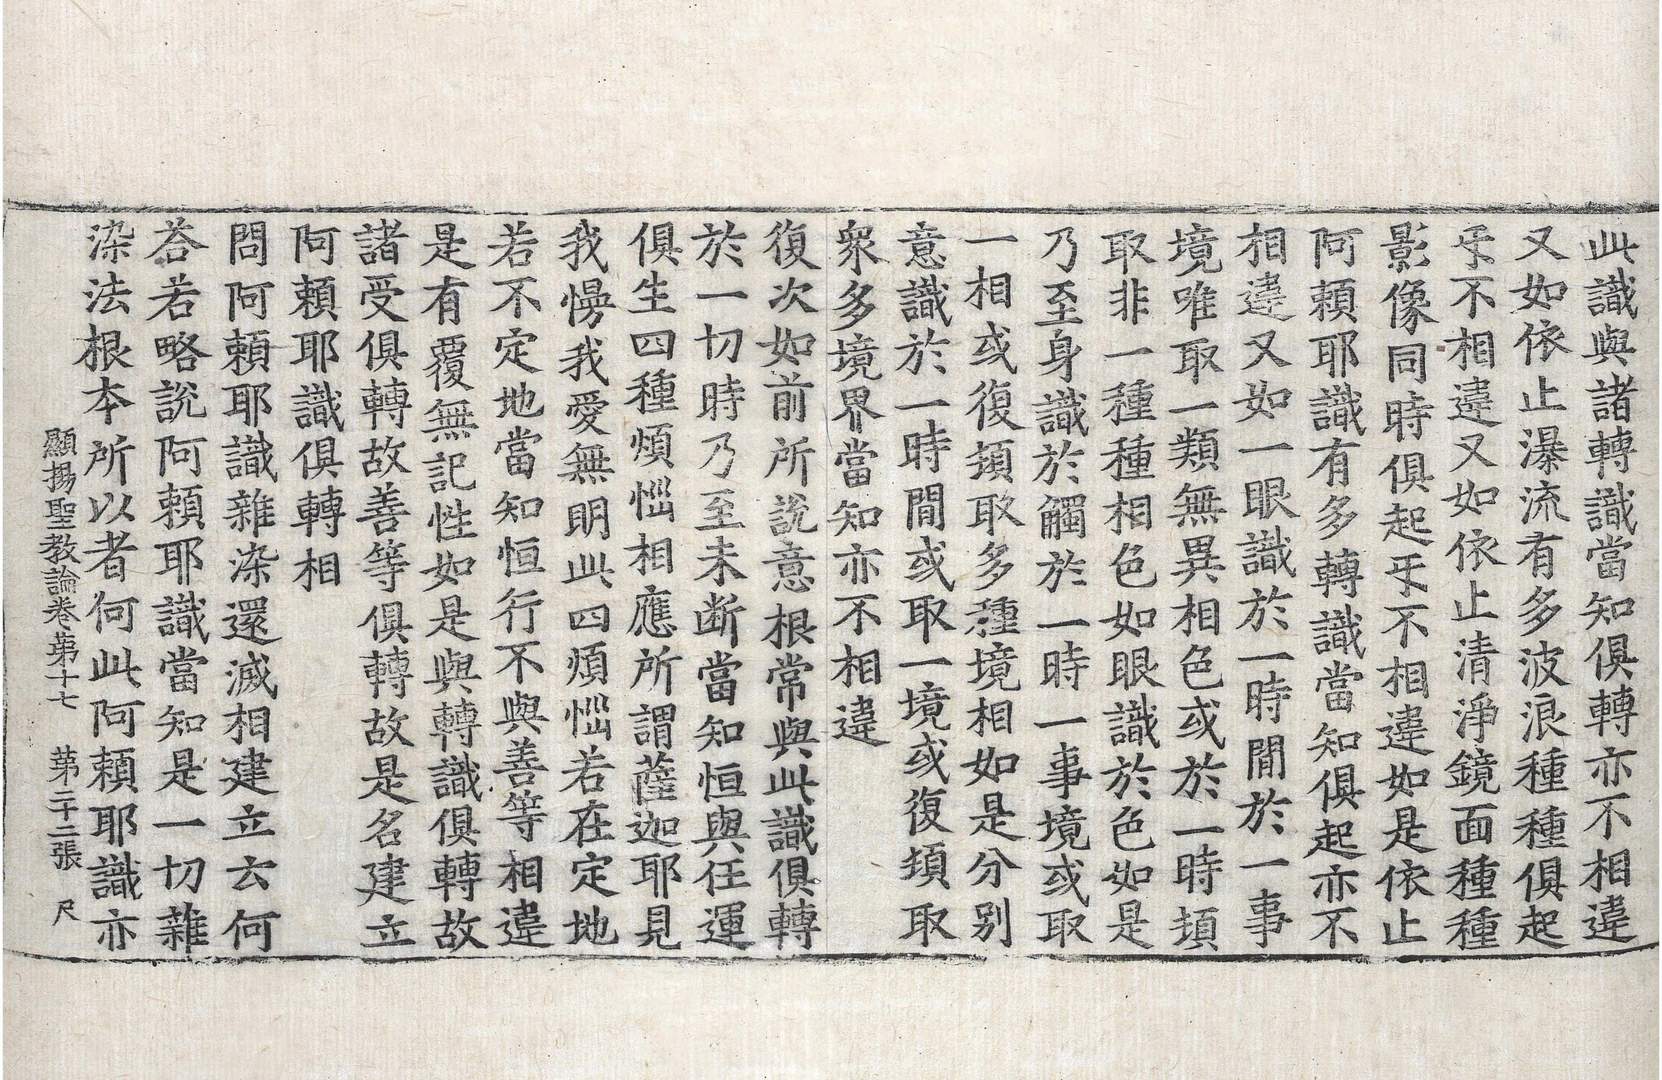 此識與諸轉識當知俱轉亦不相違
又如依止瀑流有多波浪種種俱起
㸦不相違又如依止清淨鏡面種種
影像同時俱起㸦不相違如是依止
阿賴耶識有多轉識當知俱起亦不
相違又如一眼識於一時間於一事
境唯取一類無異相色或於一時頓
取非一種種相色如眼識於色如是
乃至身識於觸於一時一事境或取
一相或復頓取多種境相如是分別
意識於一時間或取一境或復頓取
衆多境界當知亦不相違
復次如前所說意根常與此識俱轉
於一切時乃至未断當知恒與任運
俱生四種煩惱相應所謂薩迦耶見
我慢我愛無明此四煩惱若在定地
若不定地當知恒行不與善等相違
是有覆無記性如是與轉識俱轉故
諸受俱轉故善等俱轉故是名建立
阿賴耶識俱轉相
問阿賴耶識雜染還滅相建立云何
荅若略說阿賴耶識當知是一切雜
染法根本所以者何此阿賴耶識亦
顯揚聖教論卷第十七 第二十二張 尺